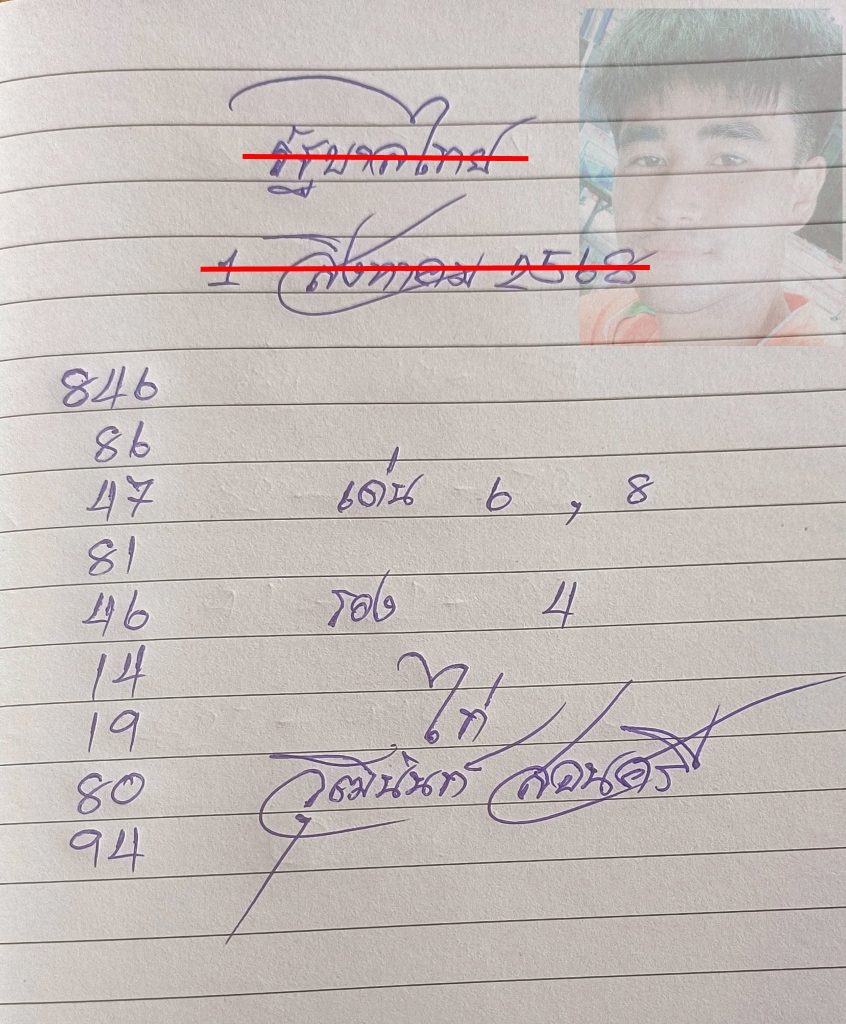 รัฐบาลไทย
1 สิงหาคม 2568
846
86
47 เด่น 6 , 8
81
46 รอง 4
14
19 ไก่
80 วุฒินันท์ สอนศรี
94